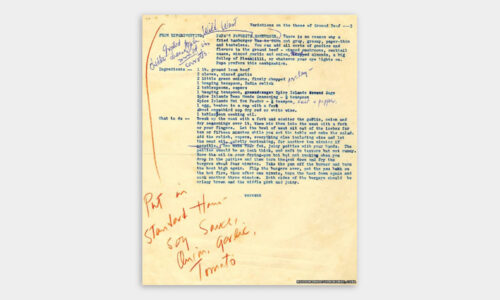 Variations on the theme of Ground Beef -- 3
Wild West
FROM EXPERIMENTING, PAPA'S FAVORITE HAMBURGER. There is no reason why a
fried hamburger has to turn out gray, greasy, paper-thin
and tasteless. You can add all sorts of goodies and
flavors to the ground beef -- minced mushrooms, cocktail
sauce, minced garlic and onion, chopped almonds, a big
dollop of piccadilli, or whatever your eye lights on.
Papa prefers this combination.
Ingredients --
1 lb. ground lean beef
2 cloves, minced garlic
2 little green onions, finely chopped
1 heaping teaspoon, India relish
2 tablespoons, capers
1 heaping teaspoon, Spice Islands Sage
Spice Islands Beau Monde Seasoning -- ½ teaspoon
Spice Islands Mei Yen Powder -- ½ teaspoon
1 egg, beaten in a cup with a fork
About one-third cup dry red or white wine.
1 tablespoon cooking oil.
What to do --
Break up the meat with a fork and scatter the garlic, onion and
dry seasonings over it, then mix them into the meat with a fork
or your fingers. Let the bowl of meat sit out of the icebox for
ten or fifteen minutes while you set the table and make the salad.
Add the relish, capers, everything else including wine and let
the meat sit, quietly marinating, for another ten minutes if
possible. Now make four fat, juicy patties with your hands. The
patties should be an inch thick, and soft in texture but not runny.
Have the oil in your frying-pan hot but not smoking when you
drop in the patties and then turn the heat down and fry the
burgers about four minutes. Take the pan off the burner and turn
the heat high again. Flip the burgers over, put the pan back on
the hot fire, then after one minute, turn the heat down again and
cook another three minutes. Both sides of the burgers should be
crispy brown and the middle pink and juicy.
Put in
Soy Sauce,
Onion, Garlic,
Tomato